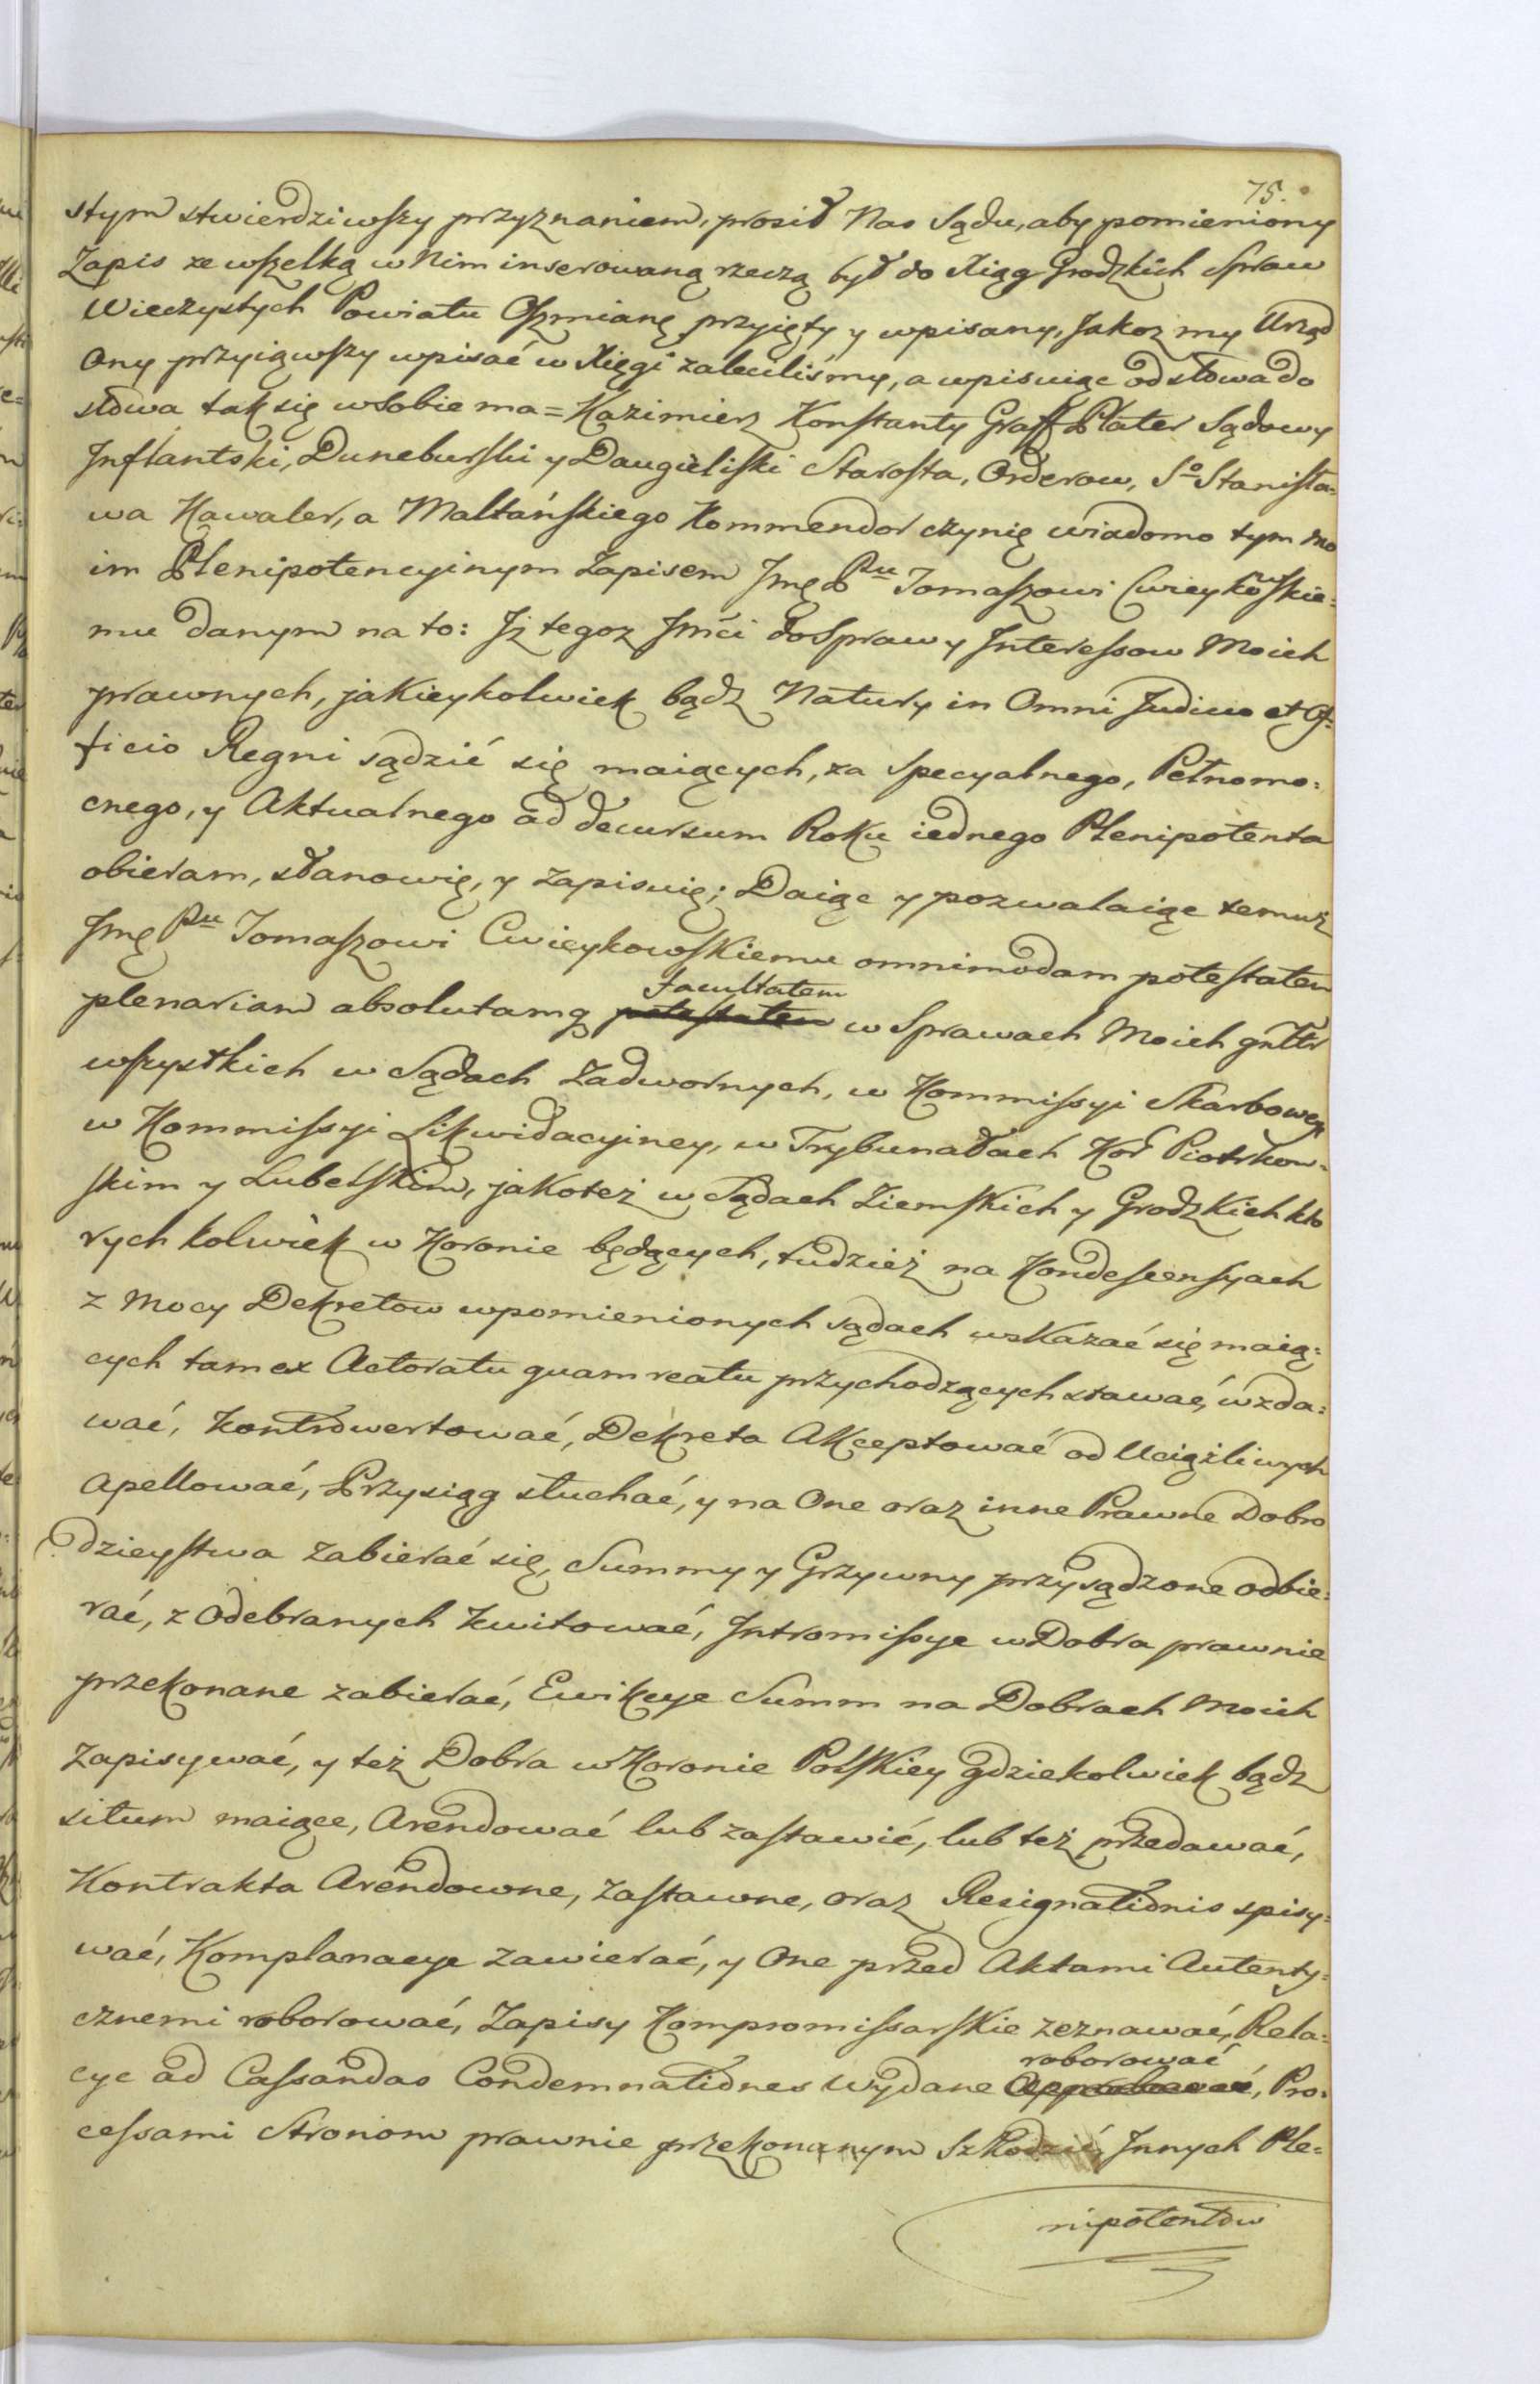 75.
stym stwierdziwszy przyznaniem, prosił Nas Sądu, aby pomieniony
Zapis ze wszelką w Nim inserowaną rzeczą był do Xiąg Grodzkich Spraw
Wieczystych Powiatu Oszmianę przyięty y wpisany, Jakoz my Urząd
Ony przyiąwszy wpisać w Xięgi zaleciliśmy, a wpisuiąc od słowa do
słowa tak się w sobie ma = Kazimierz Konstanty Graff Plater Sądowy
Inflantski, Duneburski y Daugieliski Starosta, Orderow, So Stanisła=
wa Kawaler, a Maltańskiego Kommendor czynię wiadomo tym mo
im Plenipotencyinym Zapisem Jmę Pnu Tomaszowi Cwieykowskie=
mu danym na to: Iż tegoz Jmci do Spraw y Interessow Moich
prawnych, jakieykolwiek bądz Natury in Omni Judicio et Of=
ficio Regni sądzić się maiących, za specyalnego, Pełnomo=
cnego, y Aktualnego ad decursum Roku iednego Plenipotenta
obieram, stanowię, y zapisuię; Daiąc y pozwalaiąc temuż
Jmę Pnu Tomaszowi Cwieykowskiemu omnimodam potestatem
plenariam absolutamq potestatem facultatem w Sprawach Moich gnłtr
wszystkich w Sądach Zadwornych, w Kommissyi Skarbowey
w Kommissyi Likwidacyiney, w Trybunałach Kor Piotrkow=
skim y Lubelskim, jakoteż w Sądach Ziemskich y Grodzkich kto
rych kolwiek w Koronie będących, tudzież na Kondescensyach
z mocy Dekretow wpomienionych sądach wskazać się maią=
cych tam ex Actoratu quam reatu przychodzących stawać, wzda=
wać, kontrowertować, Dekreta Akceptować od Uciążliwych
Apellować, Przysiąg słuchać, y na One oraz inne Prawne Dobro
dzieystwa zabierać się, Summy y Grzywny przysądzone odbie=
rać, z odebranych kwitować, Intromissye w Dobra prawnie
przekonane zabierać, Ewikcye Summ na Dobrach Moich
Zapisywać, y też Dobra w Koronie Polskiey gdziekolwiek bądz
situm maiące, Arendować lub zastawić, lub też przedawać,
Kontrakta Arendowne, zastawne, oraz Resignationis spisy=
wać, Komplanacye zawierać, y One przed Aktami Autenty=
cznemi roborować, Zapisy Kompromissarskie zeznawać, Rela=
cye ad Cassandas Condemnationes wydane Approbować roborować, Pro=
cessami Stronom prawnie przekonanym Szkodzić, Innych Ple=
nipotentow